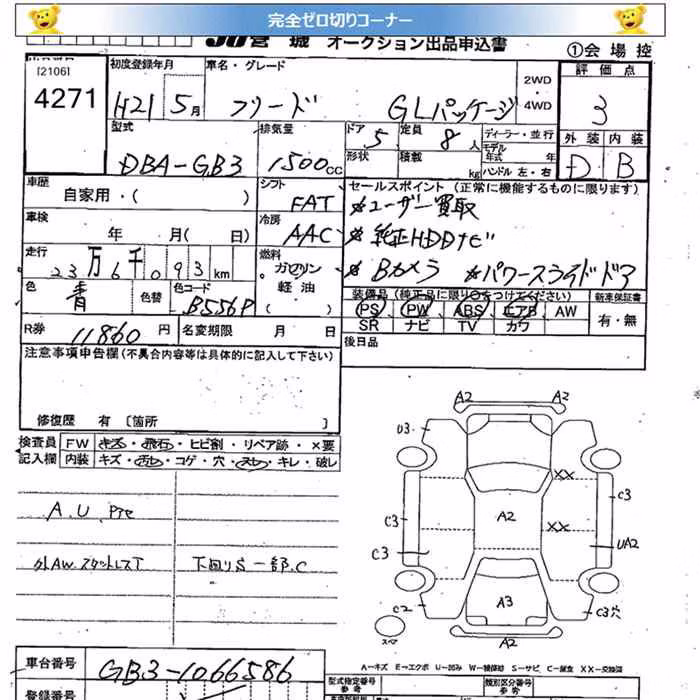 完全ゼロ切りコーナー
JU宮城 オークション出品申込書
①会場控
[2106]
4271
初度登録年月
H21 5月
車名・グレード
フリード GLパッケージ
2WD
4WD
評価点
3
外装 内装
D B
型式
DBA-GB3
排気量
1500cc
ドア
5
定員
8人
形状
積載
kg
ディーラー・並行
モデル年式 年
ハンドル 左・右
車歴
自家用・( )
シフト
FAT
車検
年 月( 日)
冷房
AAC
セールスポイント (正常に機能するものに限ります)
*ユーザー買取
*純正HDDナビ
*Bカメラ *パワースライドドア
走行
23万6千093km
燃料
ガソリン
軽油
色
青
色替
色コード
B556P
R券
11860円
名変期限 月 日
装備品(純正品に限り○をつけてください)
PS PW ABS エアB AW
SR ナビ TV カワ
新車保証書
有・無
後日品
注意事項申告欄(不具合内容等は具体的に記入して下さい)
修復歴 有 〔箇所 〕
検査員記入欄
FW キズ・飛石・ヒビ割・リペア跡・×要
内装 キズ・汚レ・コゲ・穴・スレ・キレ・破レ
A.U.Pte
外AW.スタットレスT
下回りS一部.C
A2 A2
U3
XX
C3
C3
A2
XX
C3
UA2
A3
C2
C3穴
スペア
A2
A-キズ E-エクボ U-凹み W-補修跡 S-サビ C-腐食 XX-交換済
車台番号
GB3-1066586
登録番号
型式指定番号
参考
類別区分番号
参考